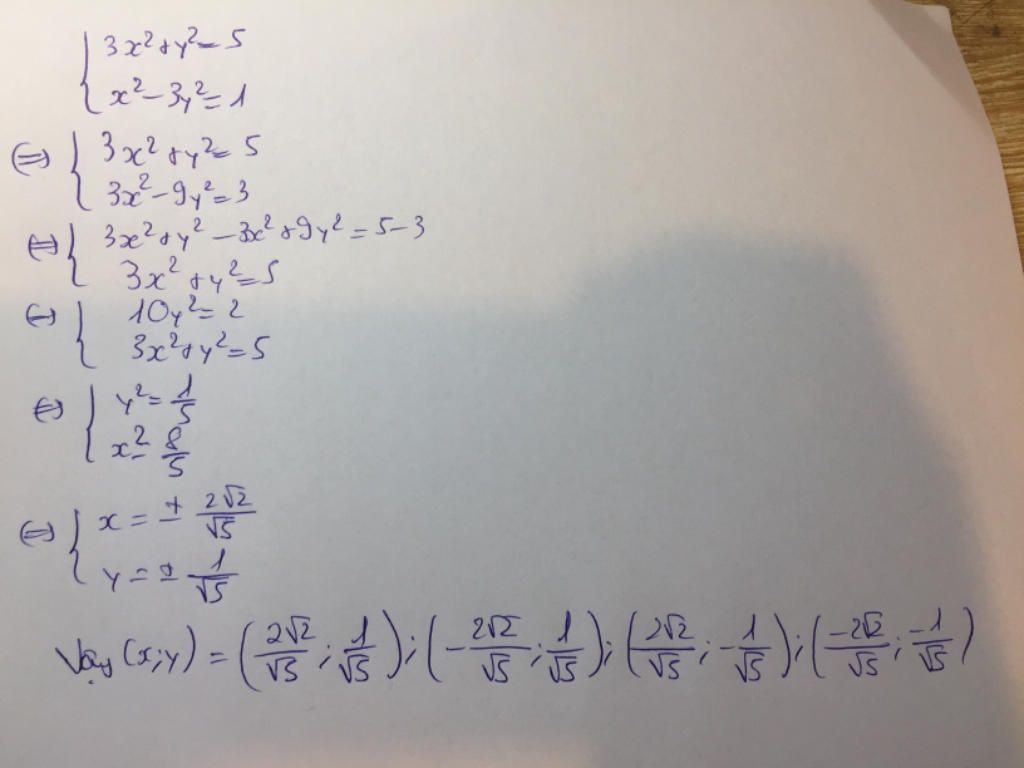 { 3x²+y²=5
x²-3y²=1
(=) { 3x²+y²=5
3x²-9y²=3
(=) { 3x²+y²-3x²+9y²=5-3
3x²+y²=5
(=) { 10y²=2
3x²+y²=5
(=) { y²=1/5
x²=8/5
(=) { x=± 2√2/√5
y=± 1/√5
Vậy (x;y) = (2√2/√5;1/√5);(-2√2/√5;1/√5);(2√2/√5;-1/√5);(-2√2/√5;-1/√5)